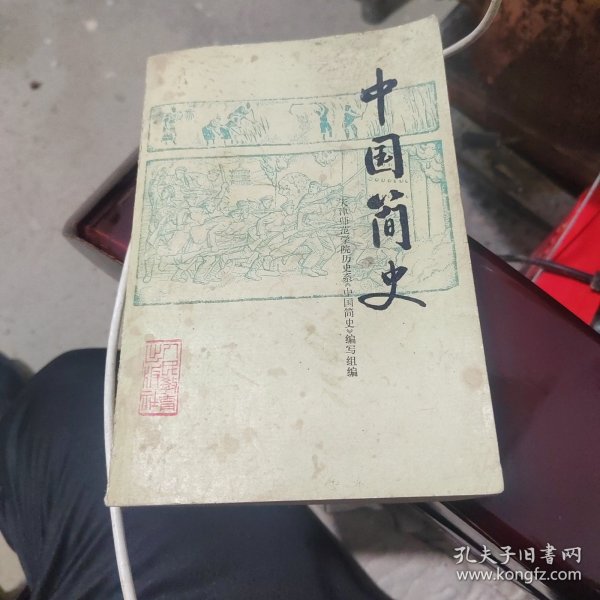 中国简史
天津师范学院历史系《中国简史》编写组编
人民教育
出版社
孔夫子旧书网
www.kongfz.com